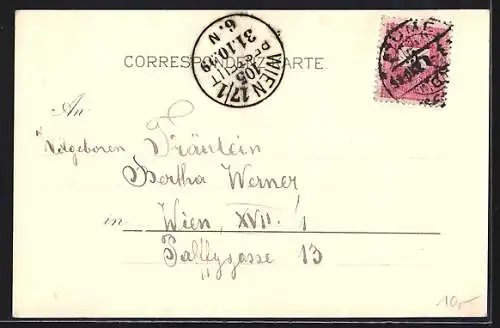 CORRESPONDENZ-KARTE.
WIEN 17/1
105
31.10.99
6.N
BESTELLT
An
Wolgeboren Fräulein
Bertha Werner
in Wien, XVII./1
Palffygasse 13
10,-